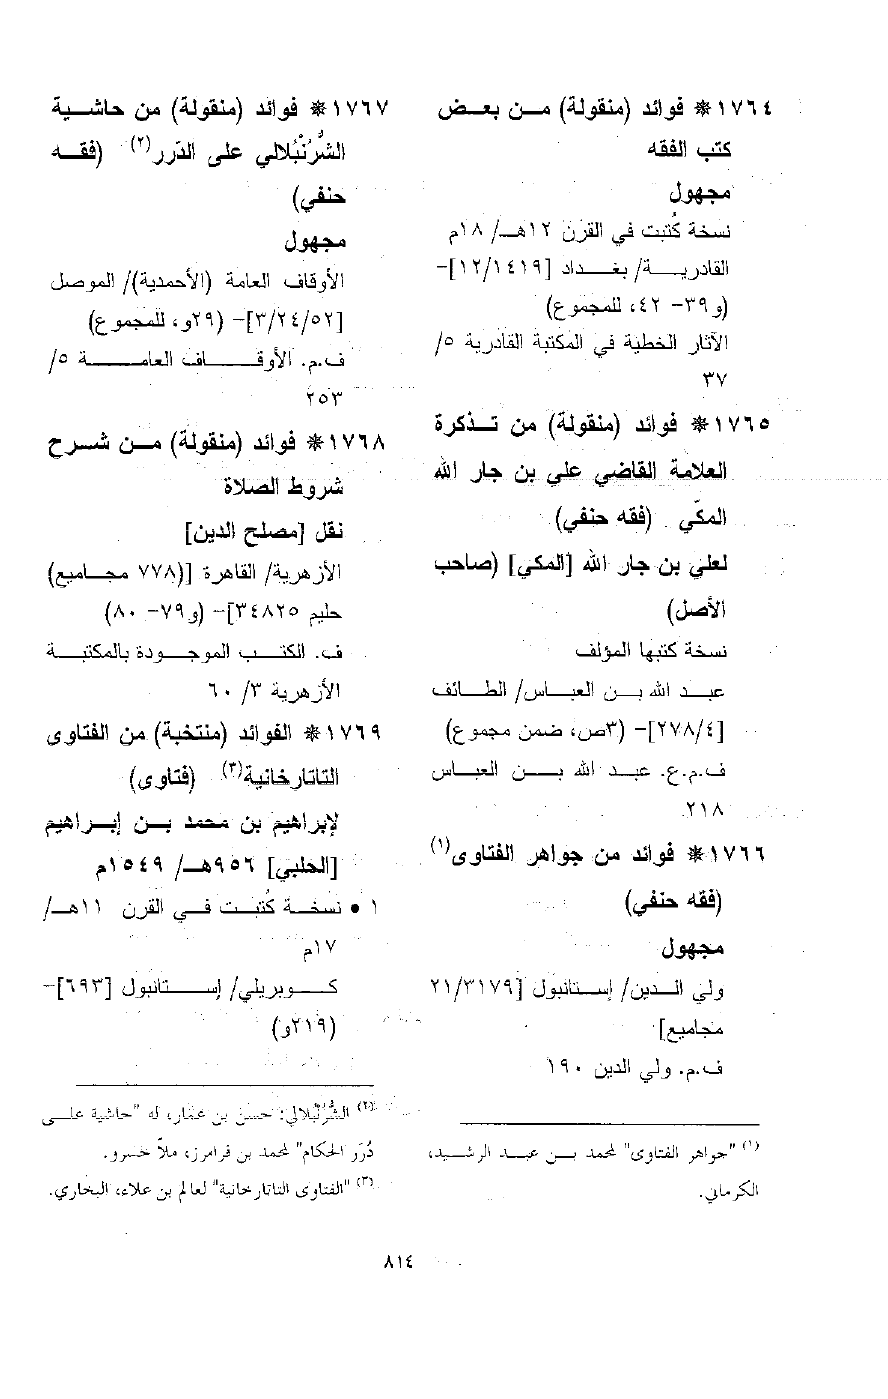 ١٧٦٤* فوائد (منقولة) من بعض
كتب الفقه
مجهول
نسخة كُتبت في القرن ١٢هـ/ ١٨م
القادرية/ بغداد [١٢/١٤١٩]-
(و٣٩- ٤٢، للمجموع)
الآثار الخطية في المكتبة القادرية ٥/
٣٧
١٧٦٥* فوائد (منقولة) من تذكرة
العلامة القاضي علي بن جار الله
المكّي (فقه حنفي)
لعلي بن جار الله [المكي] (صاحب
الأصل)
نسخة كتبها المؤلف
عبد الله بن العباس/ الطائف
[٢٧٨/٤]- (٣ص، ضمن مجموع)
ف.م.ع. عبد الله بن العباس
٢١٨
١٧٦٦* فوائد من جواهر الفتاوى(١)
(فقه حنفي)
مجهول
ولي الدين/ إستانبول [٢١/٣١٧٩
مجاميع]
ف.م. ولي الدين ١٩٠
(١) "جواهر الفتاوى" لمحمد بن عبد الرشيد،
الكرماني.
١٧٦٧* فوائد (منقولة) من حاشية
الشُّرُنْبُلالي على الدّرر(٢) (فقه
حنفي)
مجهول
الأوقاف العامة (الأحمدية)/ الموصل
[٣/٢٤/٥٢]- (٢٩و، للمجموع)
ف.م. الأوقاف العامة ٥/
٢٥٣
١٧٦٨* فوائد (منقولة) من شرح
شروط الصلاة
نقل [مصلح الدين]
الأزهرية/ القاهرة [(٧٧٨ مجاميع)
حليم ٣٤٨٢٥]- (و٧٩- ٨٠)
ف. الكتب الموجودة بالمكتبة
الأزهرية ٣/ ٦٠
١٧٦٩* الفوائد (منتخبة) من الفتاوى
التاتارخانية(٣) (فتاوى)
لإبراهيم بن محمد بن إبراهيم
[الحلبي] ٩٥٦هـ/ ١٥٤٩م
١ • نسخة كُتبت في القرن ١١هـ/
١٧م
كوبريلي/ إستانبول [٦٩٣]-
(٢١٩و)
(٢) الشُّرُنْبُلالي: حسن بن عمّار، له "حاشية على
دُرَر الحكام" لمحمد بن فرامرز، ملاّ خسرو.
(٣) "الفتاوى التاتارخانية" لعالم بن علاء، البخاري.
٨١٤